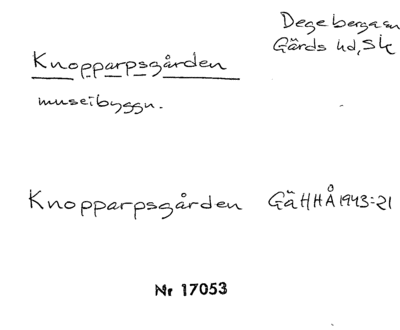 Degeberga sn
Gärds hd, Sk
Knopparpsgården
museibyggn.
Knopparpsgården GäHHÅ 1943:21
Nr 17053